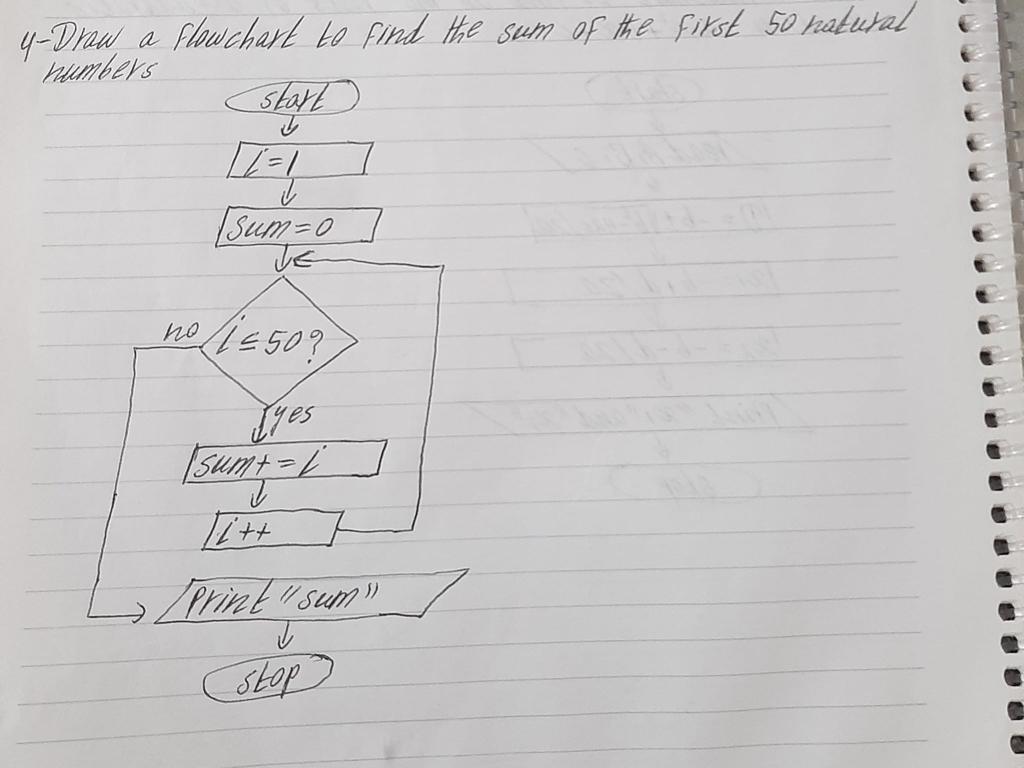 4-Draw a flowchart to find the sum of the first 50 natural
numbers
start
i=1
sum=0
no
i≤50?
yes
sum+=i
i++
print "sum"
stop